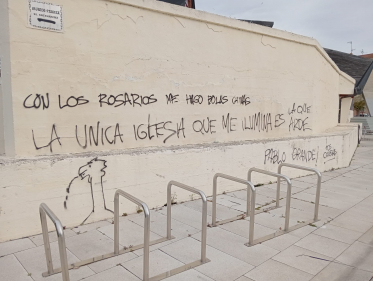 CON LOS ROSARIOS ME HAGO BOLAS CHINAS
LA UNICA IGLESIA QUE ME ILUMINA ES LA QUE
ARDE
PABLO GRANDE!